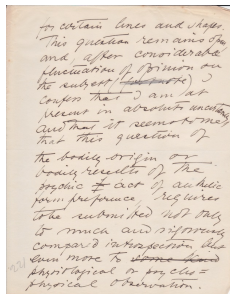 for certain lines and shapes.
This question remains open
and, after considerable
fluctuation of opinion on
the subject, I
confess that I am at
present in absolute uncertainty
and that it seems to me
that this question of
the bodily origin or
bodily results of the
psychic act of aesthetic
form preference, requires
to be submitted not only
to much and rigorously
compared introspection, but
even more to some kind
physiological or psycho=
physical observation.